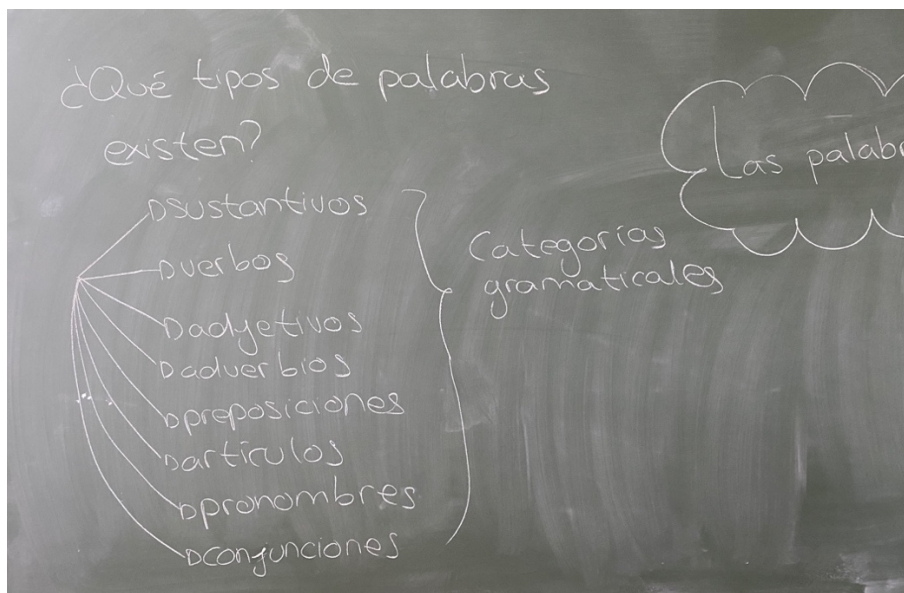 ¿Qué tipos de palabras
existen?
sustantivos
verbos
adjetivos
adverbios
preposiciones
artículos
pronombres
conjunciones
Categorías
gramaticales
Las palabr